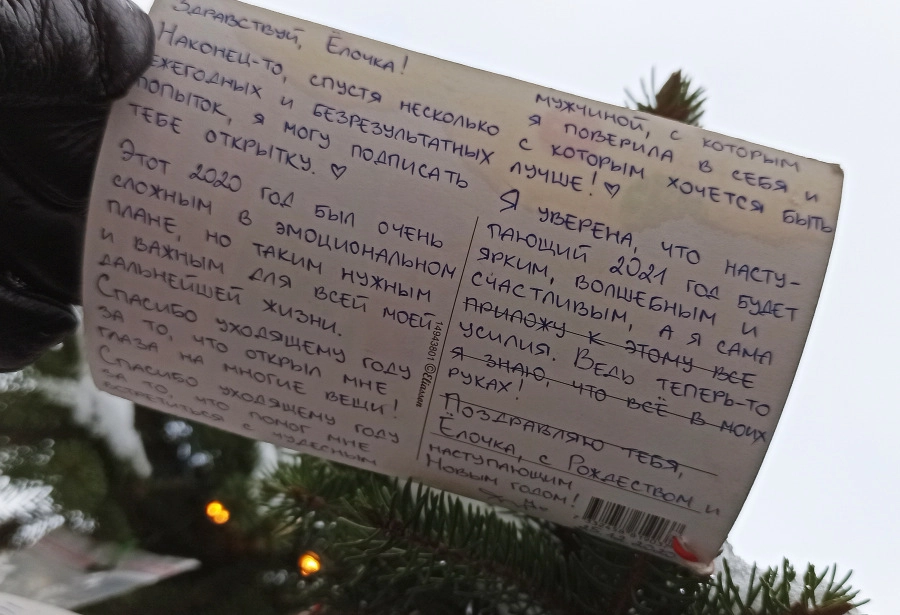 Здравствуй, Ёлочка!
Наконец-то, спустя несколько
ежегодных и безрезультатных
попыток, я могу подписать
тебе открытку. ♡
Этот 2020 год был очень
сложным в эмоциональном
плане, но таким нужным
и важным для всей моей
дальнейшей жизни.
Спасибо уходящему году
за то, что открыл мне
глаза на многие вещи!
Спасибо уходящему году
за то, что помог мне
встретиться с чудесным
мужчиной, с которым
я поверила в себя и
с которым хочется быть
лучше! ♡
Я уверена, что насту-
пающий 2021 год будет
ярким, волшебным и
счастливым, а я сама
приложу к этому все
усилия. Ведь теперь-то
я знаю, что всё в моих
руках!
Поздравляю тебя,
Ёлочка, с Рождеством и
наступающим
Новым годом!
14943801 ©Eliassen